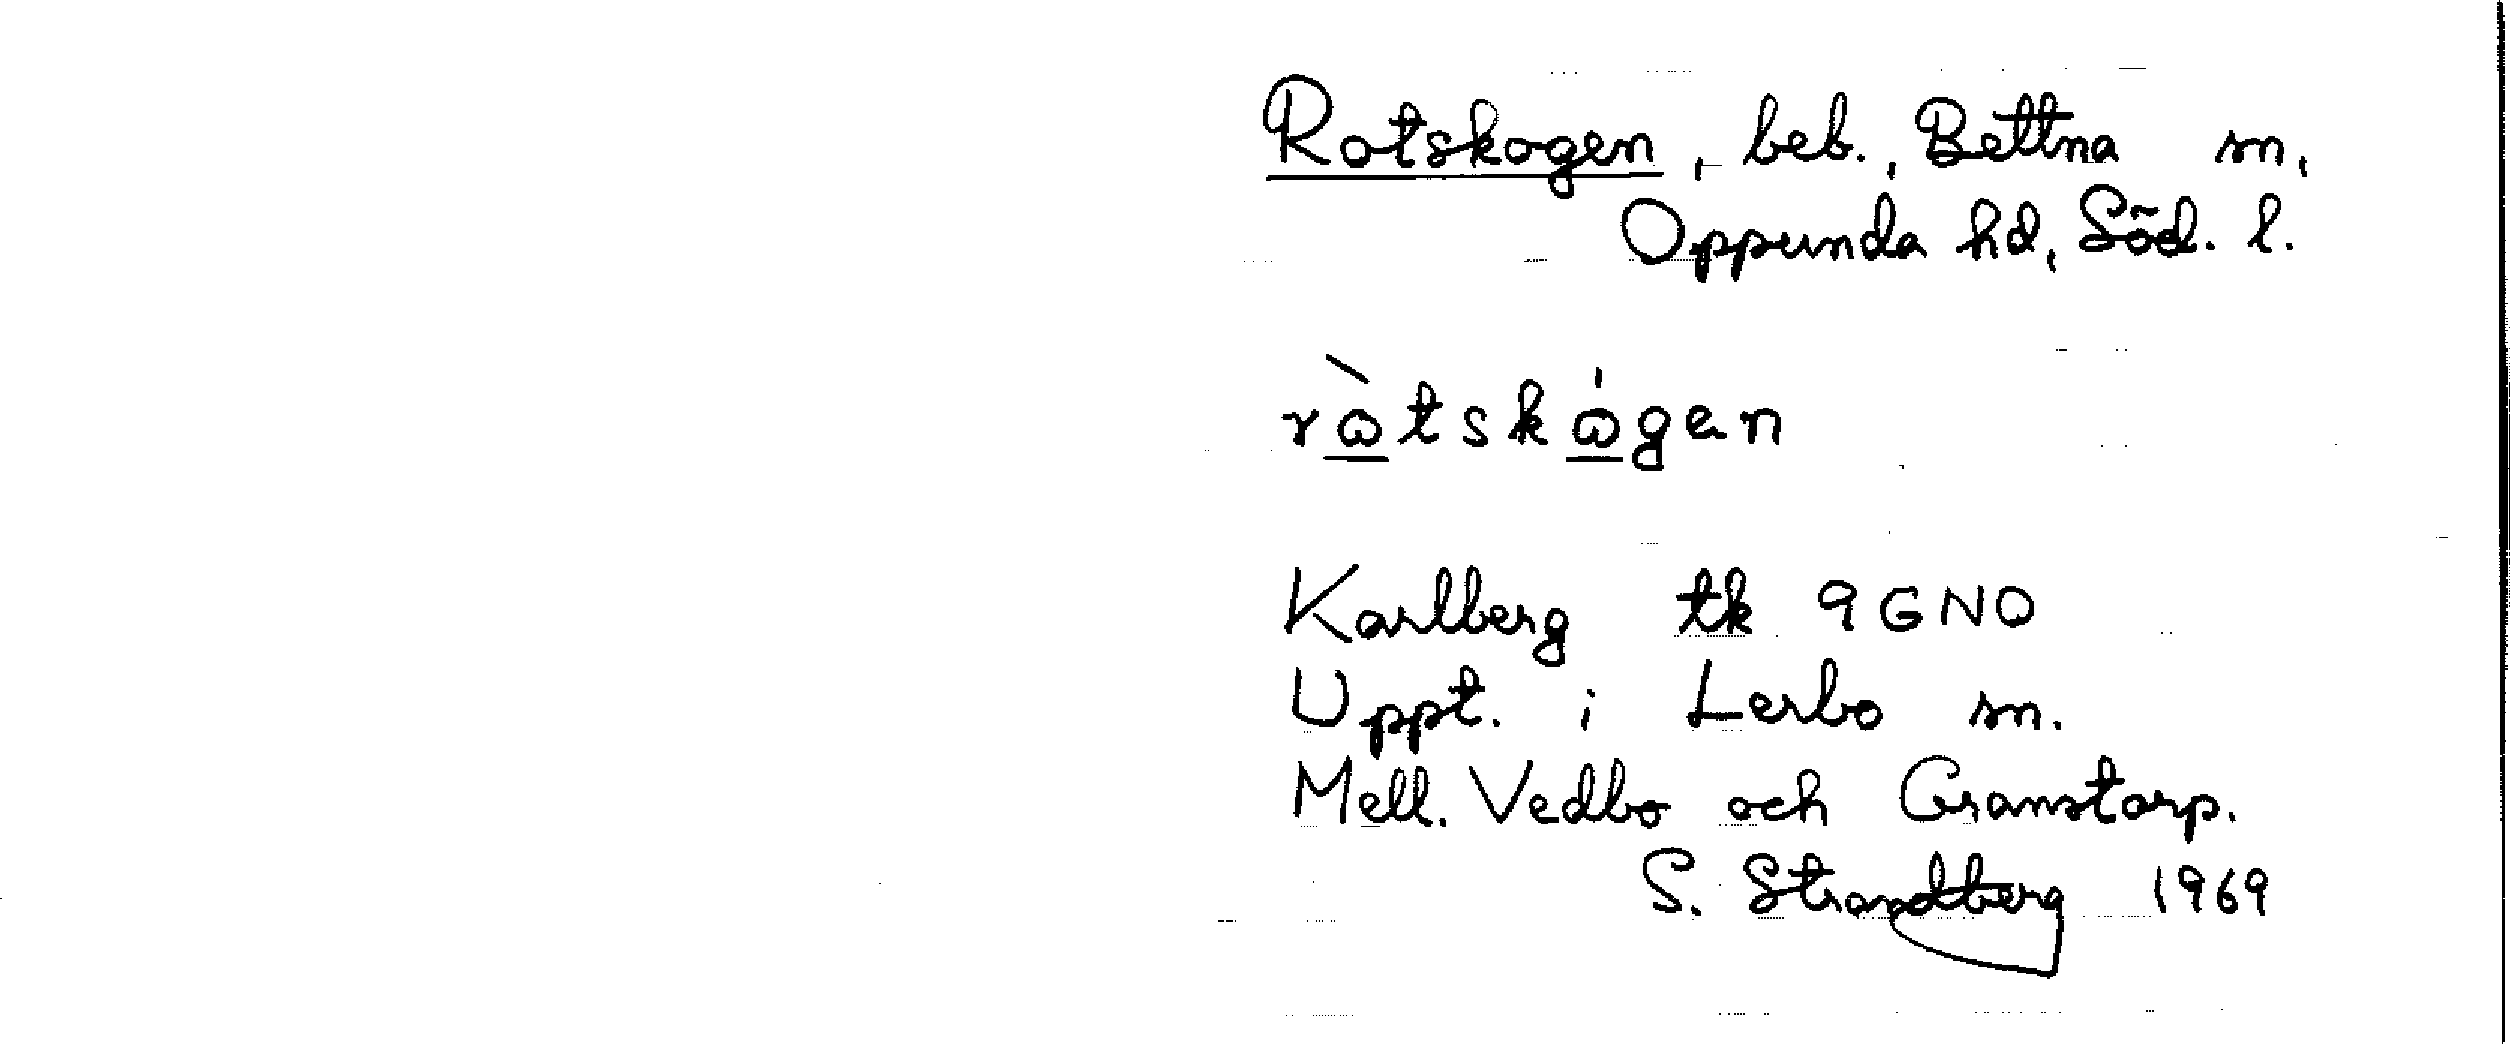 Rotskogen, beb., Bettna sn,
Oppunda hd, Söd. l.
rɷ̀tskɷ́gen
Karlberg tk 9GNO
Uppt. i Lerbo sn.
Mell. Vedbo och Granstorp.
S. Strandberg 1969